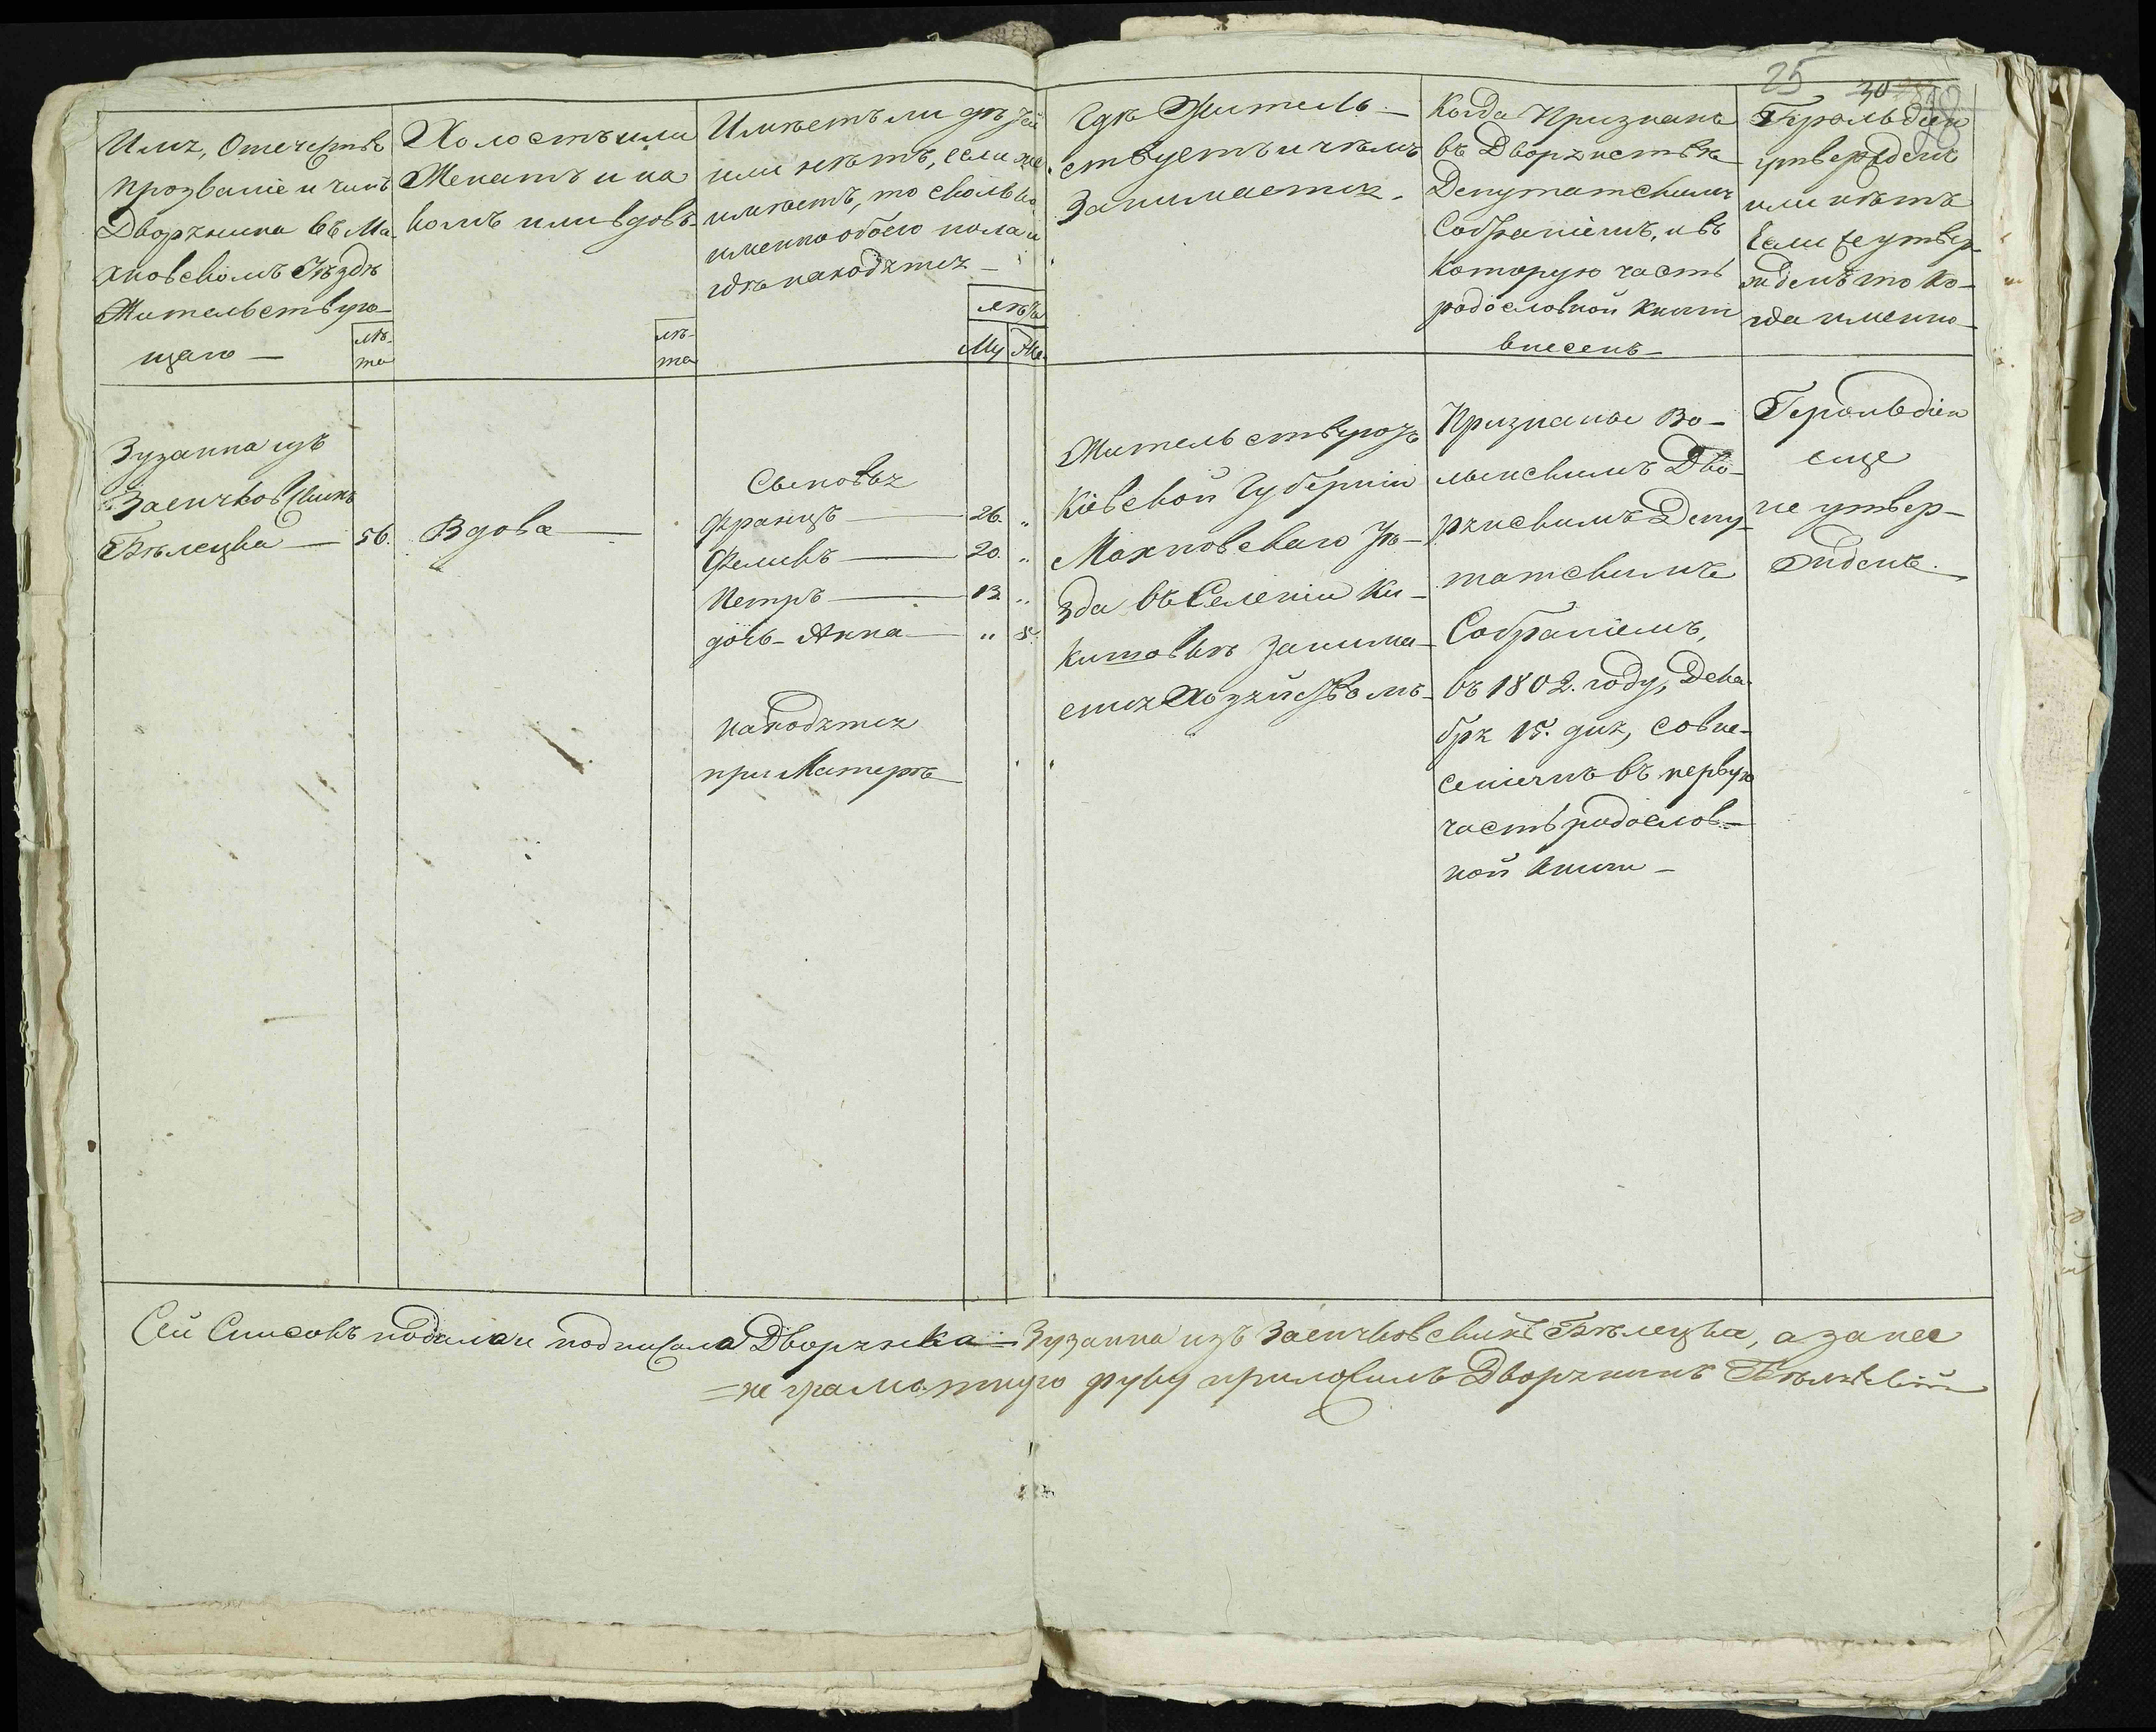 25
30
Имя, Отечество
прозваніе и чинъ
Дворянина въ Ма-
хновскомъ Уѣздѣ
Жительствую-
щаго —
лѣ-
та
Холостъ или
Женатъ и на
комъ или вдовъ
лѣ-
та
Имѣетъ ли дѣтей
или нѣтъ, если же
имѣетъ, то сколько
именно обоего пола и
гдѣ находятся —
лѣта
Му Же
Гдѣ Житель-
ствуетъ и чѣмъ
Занимается.
Когда Признанъ
въ Дворянствѣ
Депутатскимъ
Собраніемъ, и въ
Которую часть
родословной книги
внесенъ —
Герольдіею
утвержденъ
или нѣтъ
Если же утвер-
жденъ то ко-
гда именно —
Зузанна изъ
Заенчковскихъ
Бѣлецка — 56.
Вдова —
Сыновья
Францъ — 26. „
Феликъ — 20. „
Петръ — 13. „
дочь Анна — „ 8.
находятся
при Матерѣ
Жительствуюзъ
Кіевской Губерніи
Махновскаго Уѣ-
зда въ Селеніи Ки-
китовкѣ Занима-
ется Хозяйствомъ —
Признаны Во-
лынскимъ Дво-
рянскимъ Депу-
татскимъ
Собраніемъ,
въ 1802. году, Дека-
бря 15. дня, со вне-
сеніемъ въ первую
часть родослов-
ной книги —
Герольдіею
еще
не утвер-
жденъ.
Сей Списокъ подала и подписала Дворянка = Зузанна изъ Заенчковскихъ Бѣлецка, а за нее
= не грамотную руку приложилъ Дворянинъ Бѣлѣвскій